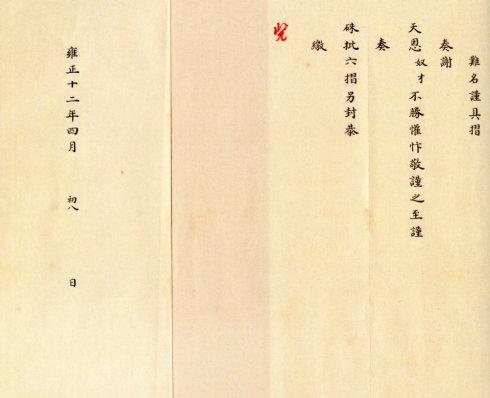 難名謹具摺
奏謝
天恩奴才不勝惟忭敬謹之至謹
奏
硃批六摺另封恭
繳
覽
雍正十二年四月初八日